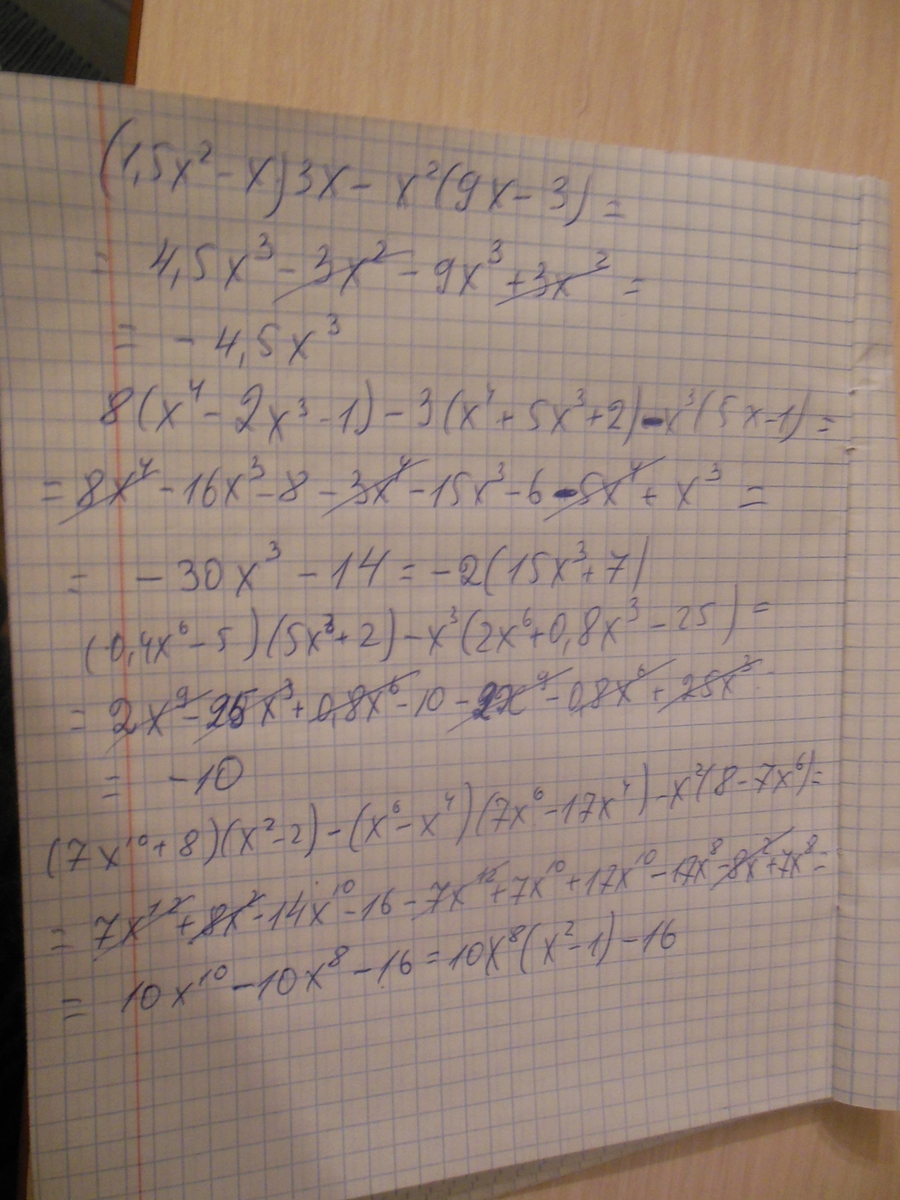 (1,5x² - x)3x - x²(9x - 3) =
= 4,5x³ - 3x² - 9x³ + 3x² =
= - 4,5x³
8(x⁴ - 2x³ - 1) - 3(x⁴ + 5x³ + 2) - x³(5x - 1) =
= 8x⁴ - 16x³ - 8 - 3x⁴ - 15x³ - 6 - 5x⁴ + x³ =
= - 30x³ - 14 = -2(15x³ + 7)
(0,4x⁶ - 5)(5x³ + 2) - x³(2x⁶ + 0,8x³ - 25) =
= 2x⁹ - 25x³ + 0,8x⁶ - 10 - 2x⁹ - 0,8x⁶ + 25x³ =
= - 10
(7x¹⁰ + 8)(x² - 2) - (x⁶ - x⁴)(7x⁶ - 17x⁴) - x²(8 - 7x⁶) =
= 7x¹² + 8x² - 14x¹⁰ - 16 - 7x¹² + 7x¹⁰ + 17x¹⁰ - 17x⁸ - 8x² + 7x⁸ =
= 10x¹⁰ - 10x⁸ - 16 = 10x⁸(x² - 1) - 16